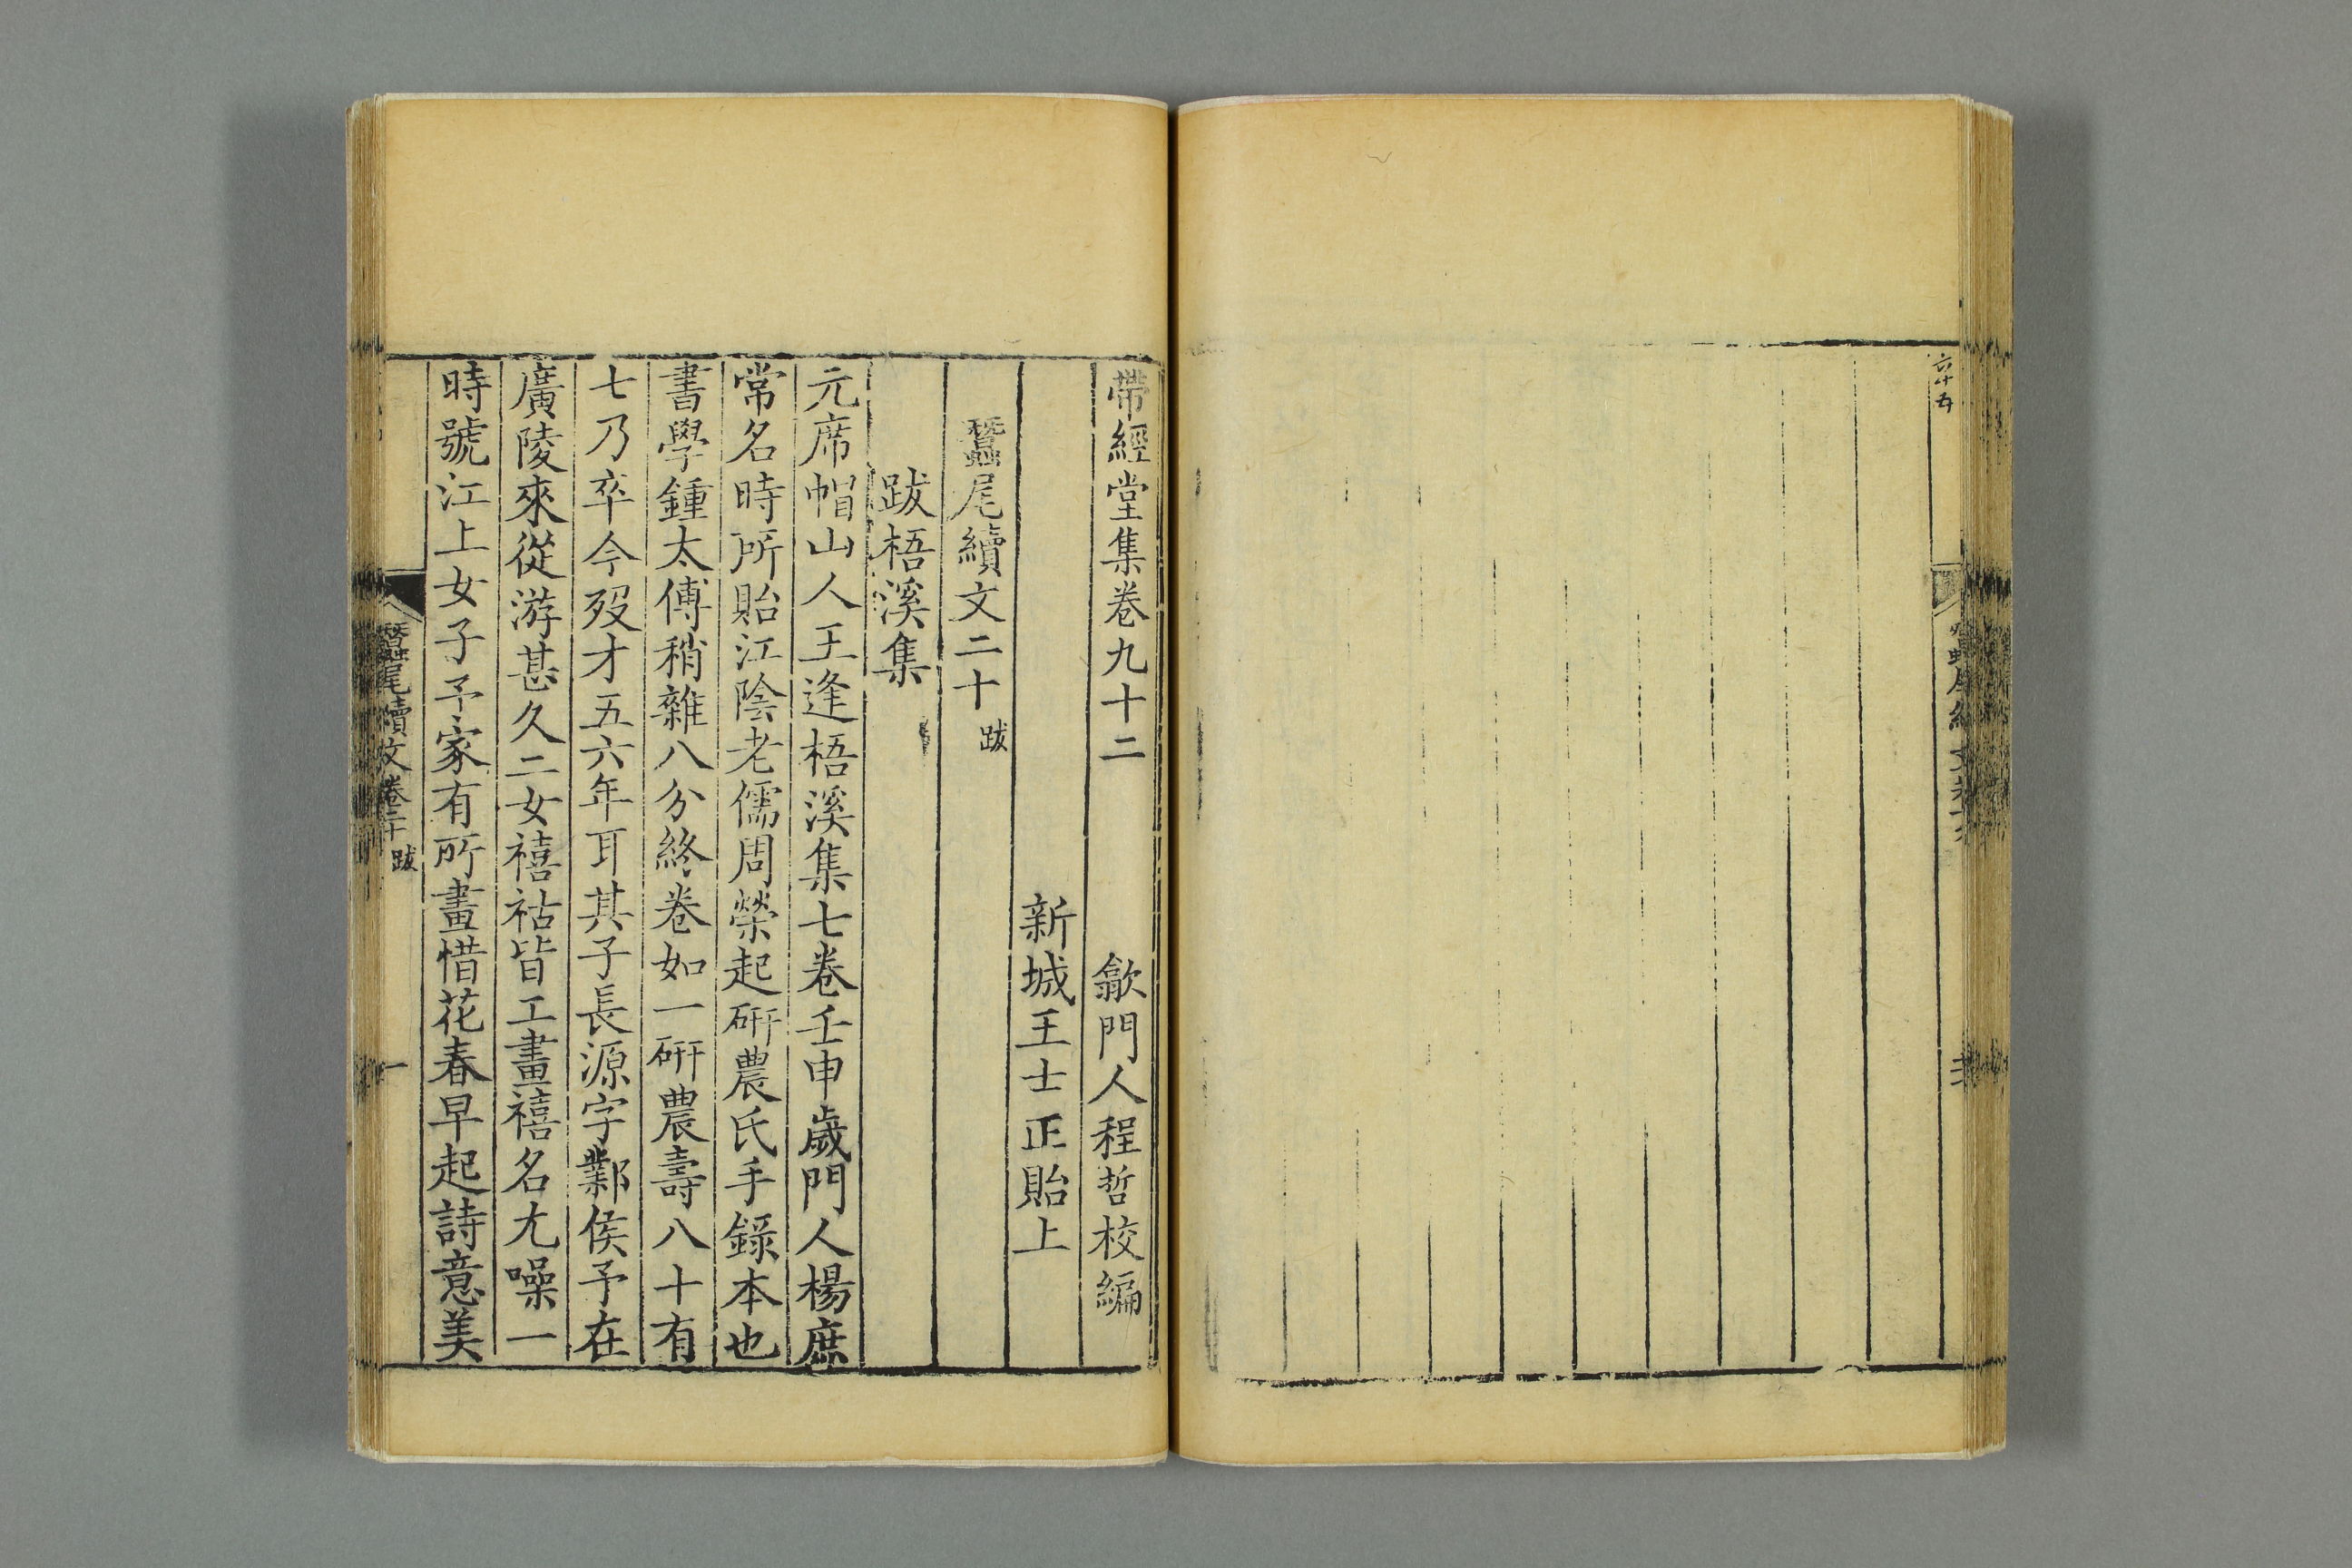 六十五
帶經堂集卷九十二　歙門人程哲校編
新城王士正貽上
蠶尾續文二十　跋
跋梧溪集
元席帽山人王逢梧溪集七卷壬申歲門人楊庶
常名時所貽江陰老儒周榮起硏農氏手錄本也
書學鍾太傅稍雜八分終卷如一硏農壽八十有
七乃卒今歿才五六年耳其子長源字鄴侯予在
廣陵來從游甚久二女禧祜皆工畫禧名尤噪一
時號江上女子予家有所畫惜花春早起詩意美
蠶尾續文卷二十　跋　一